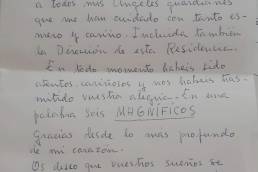 a todos mis Angeles guardianes
que me han cuidado con tanto es-
mero y cariño. Incluida también
la Dirección de esta Residencia.
En todo momento habeis sido
atentos cariñosos y nos habeis tras-
mitido vuestra alegria. En una
palabra sois MAGNÍFICOS
Gracias desde lo mas profundo
de mi corazón.
Os deseo que vuestros sueños se